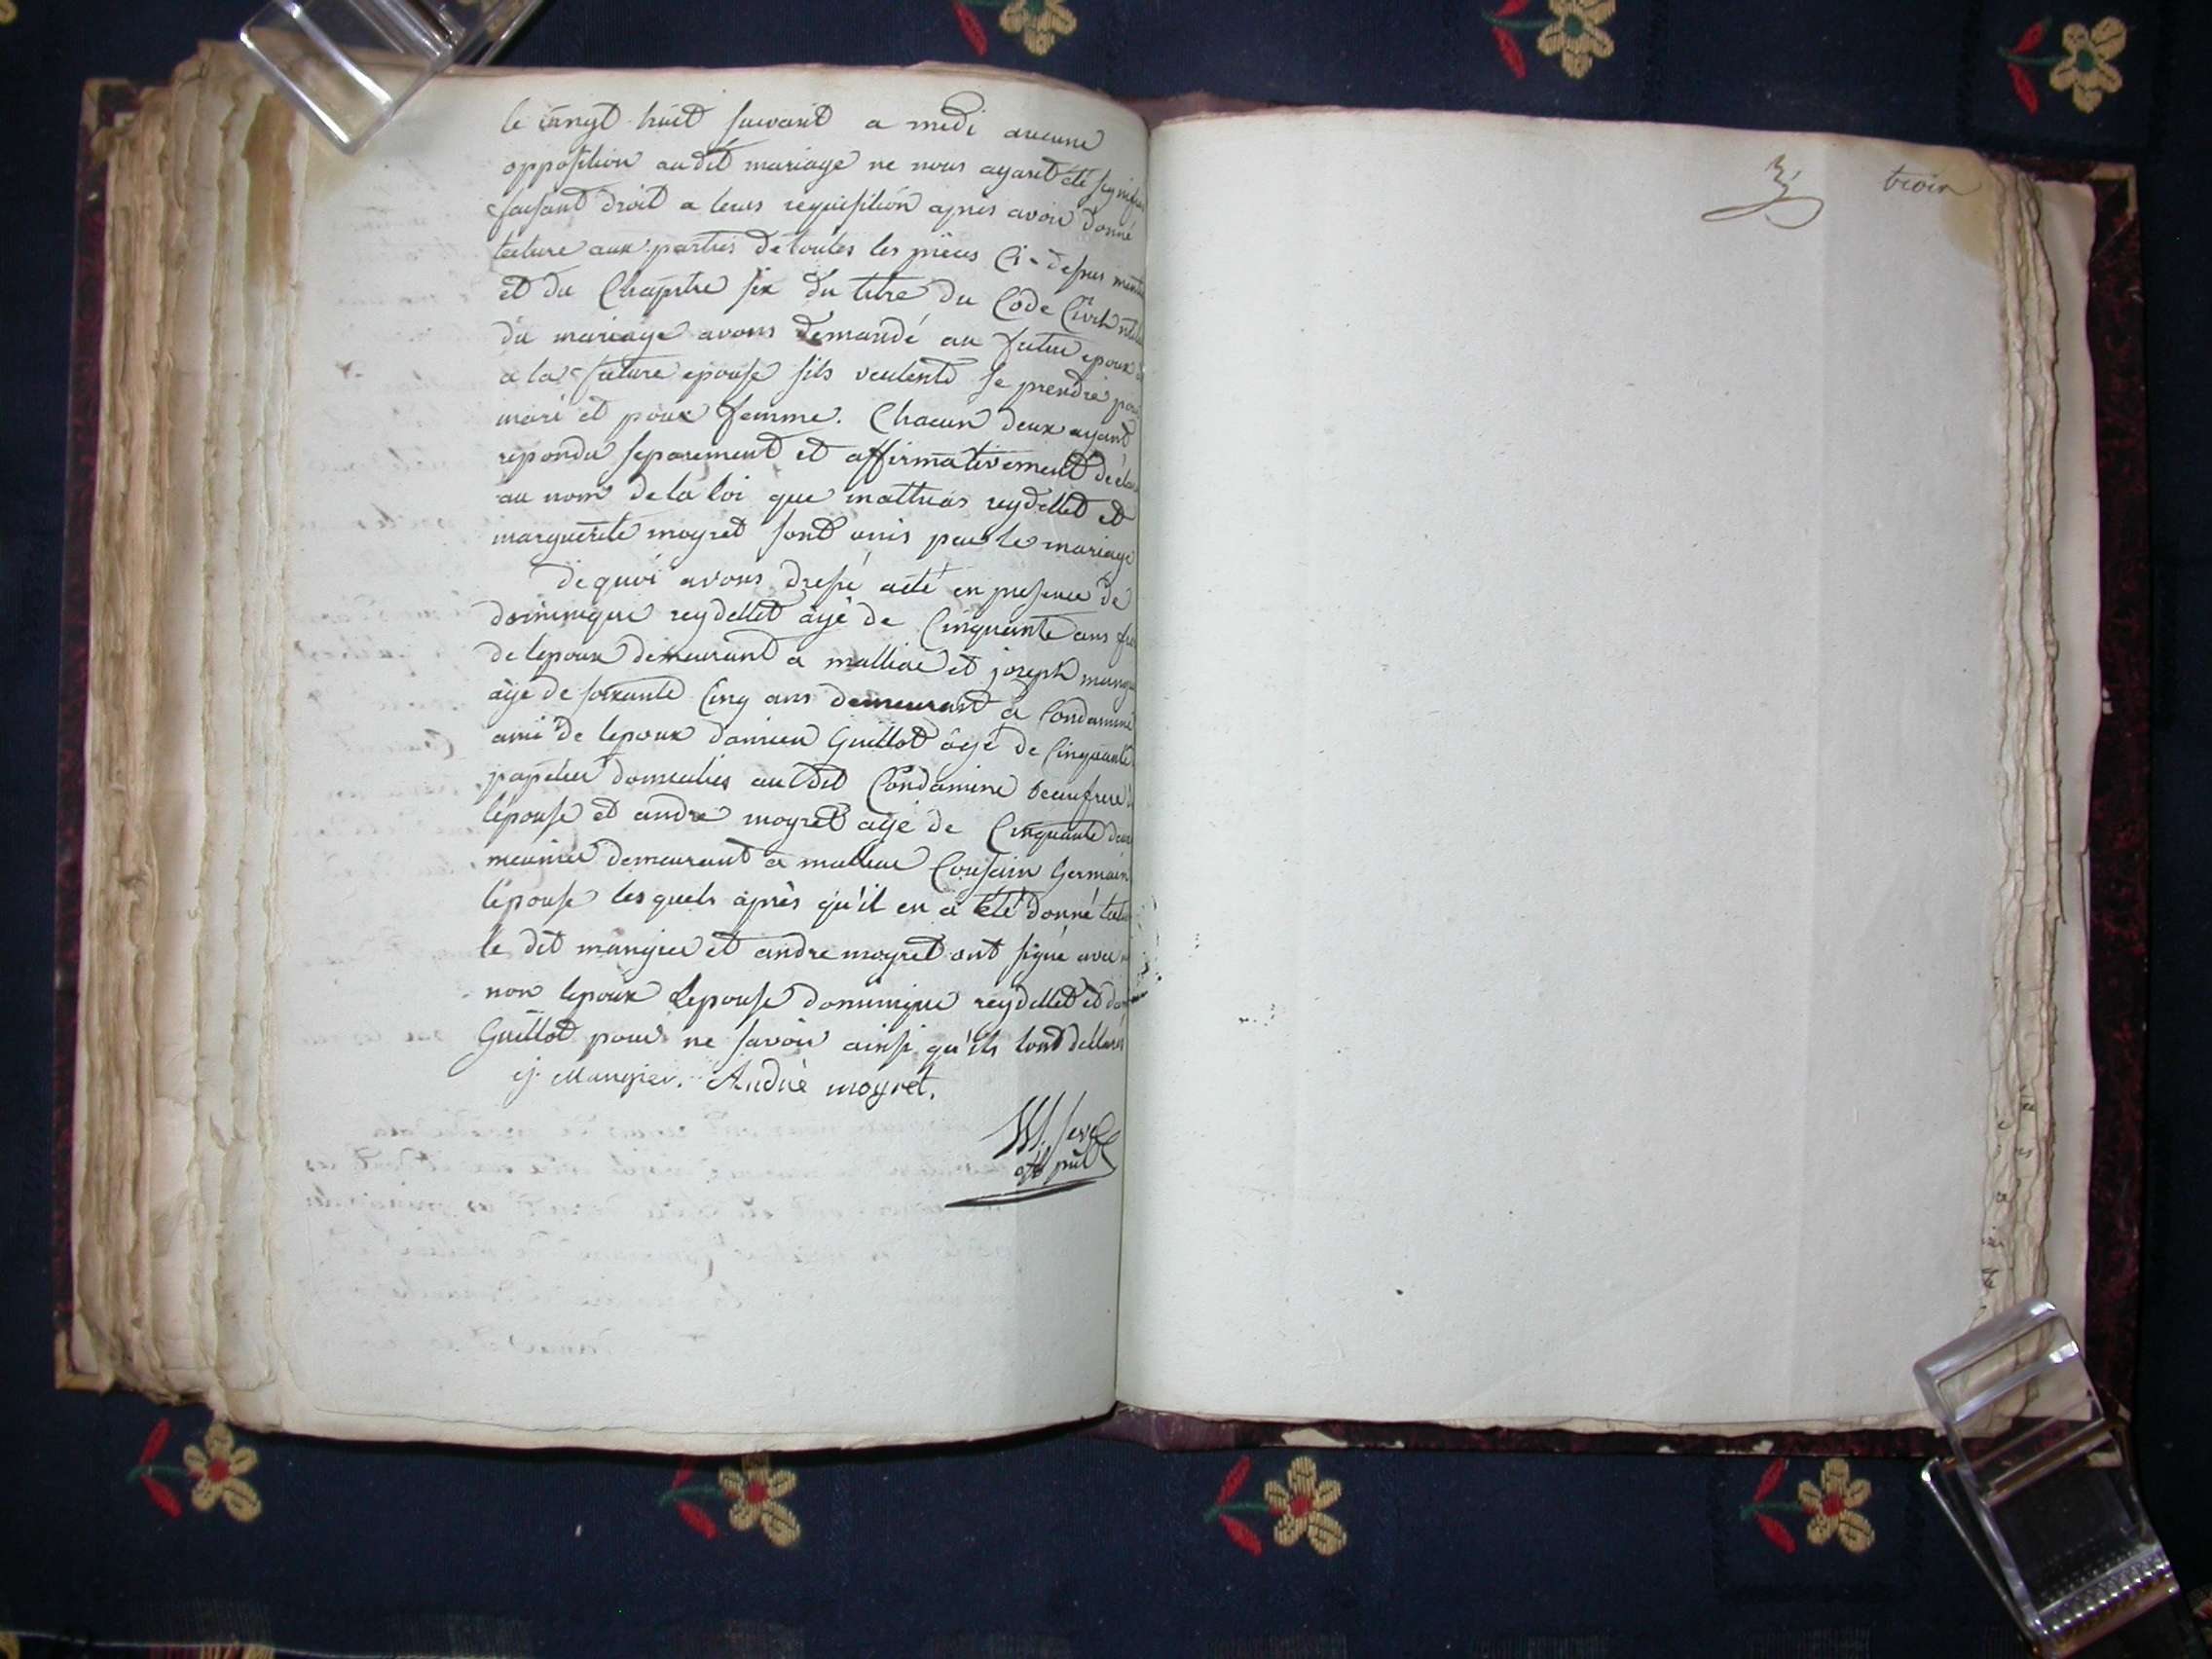 le vingt huit suivant a midi aucune
opposition audit mariage ne nous ayant été signifiée
faisant droit a leurs requisition apres avoir donné
lecture aux parties de toutes les pieces Ci-dessus
et du Chapitre six du titre du Code Civil
du mariage avons demandé au futur epoux
a la future epouse sils veulents se prendre pour
mari et pour femme. Chacun deux ayant
repondu separement et affirmativement
au nom de la loi que mathias reydellet et
marguerite moyret sont unis par le mariage
de quoi avons dressé acte en presence de
dominique reydellet âgé de Cinquante ans
de lepoux demeurant a malliac et joseph
âgé de soixante Cinq ans demeurant a Condamine
ami de lepoux damien Guillot âgé de Cinquante
papetier domicilies au dit Condamine beaufrere
lepouse et andre moyret agé de Cinquante deux
meunier demeurant a malliac Cousin Germain
lépouse lesquels après qu'il en a été donné
le dit mangier et andre moyret ont signé avec
non lepoux Lepouse dominique reydellet et
Guillot pour ne savoir ainsi qu'ils lont déclarés
j. Mangier. André moyret.
3 trois